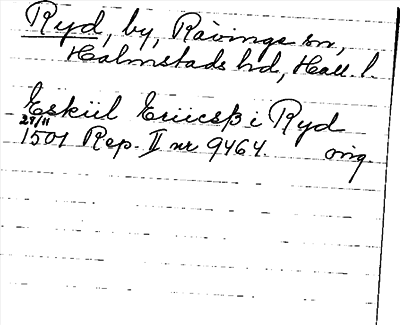 Ryd, by, Rävinge sn,
Halmstads hd, Hall. l.
Eskiil Eriicsß i Ryd
29/11
1501 Rep. II nr 9464. orig